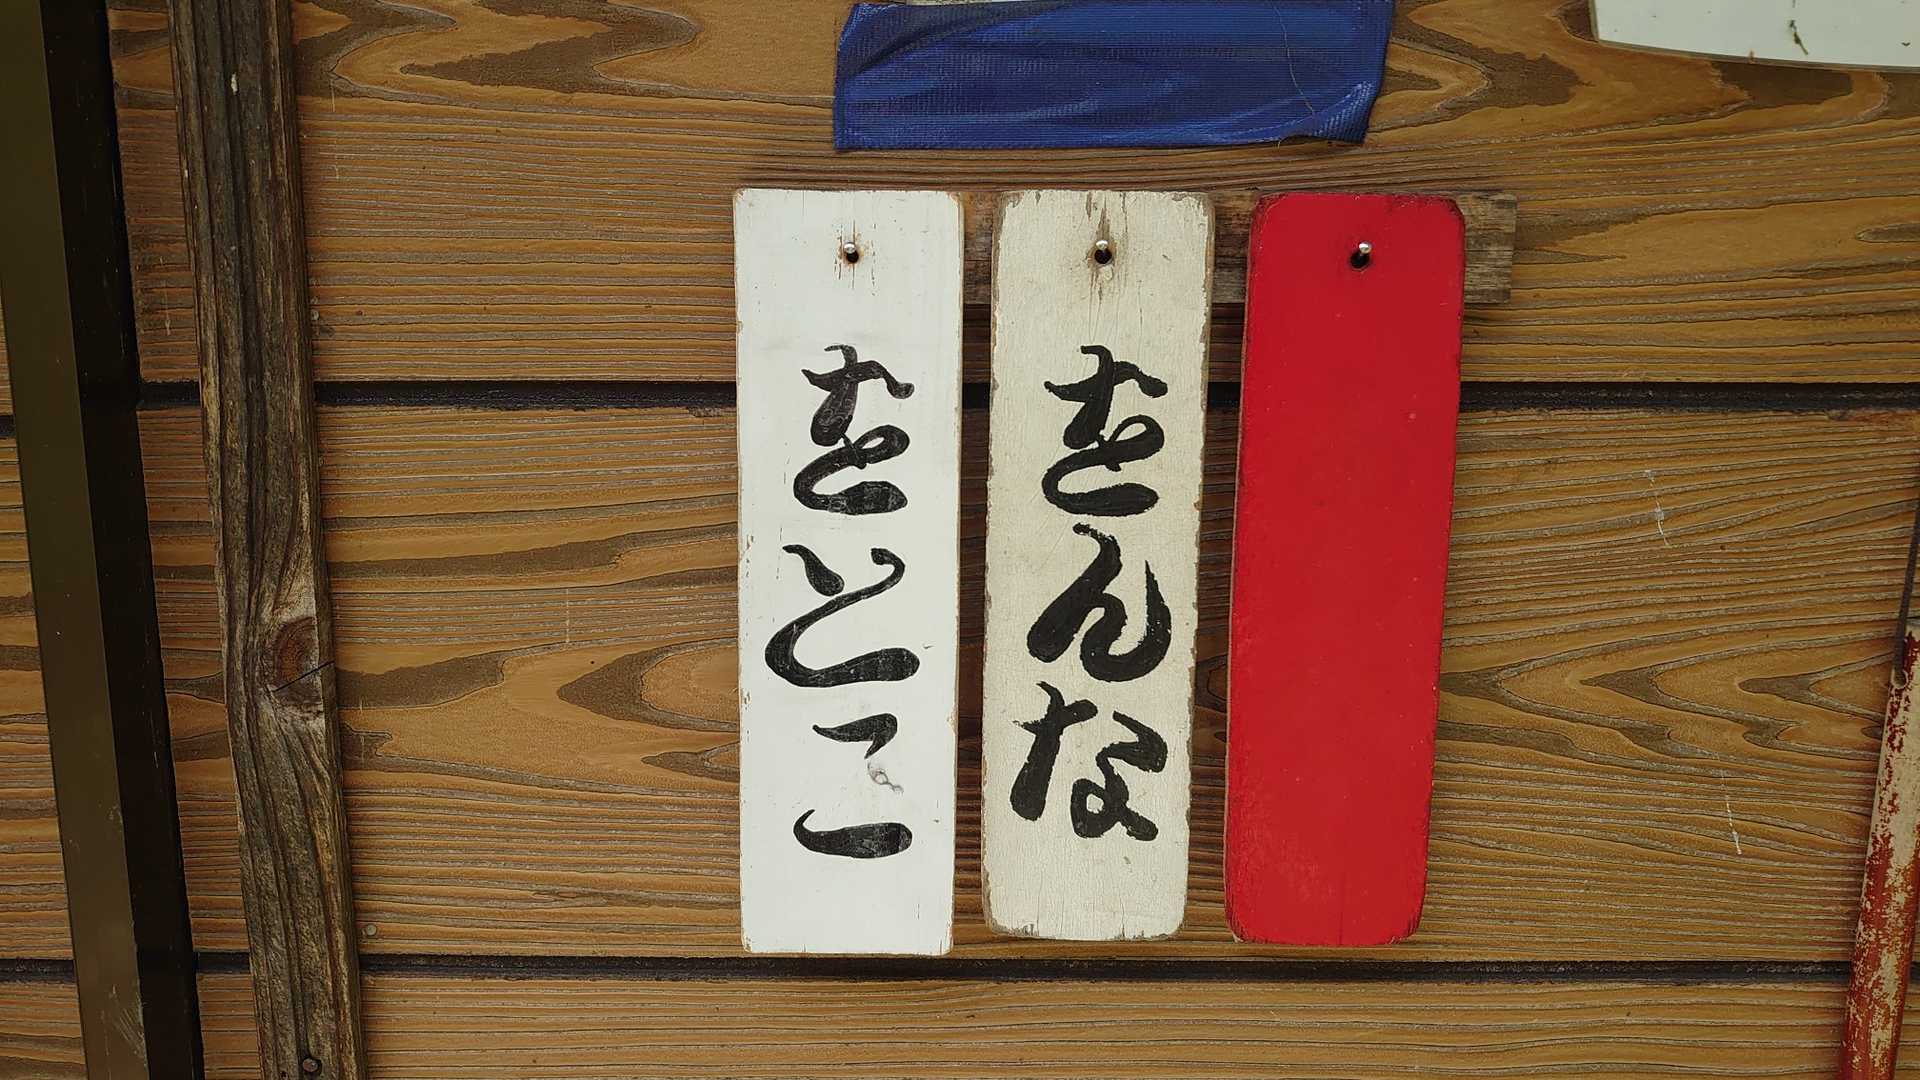 をとこ
をんな